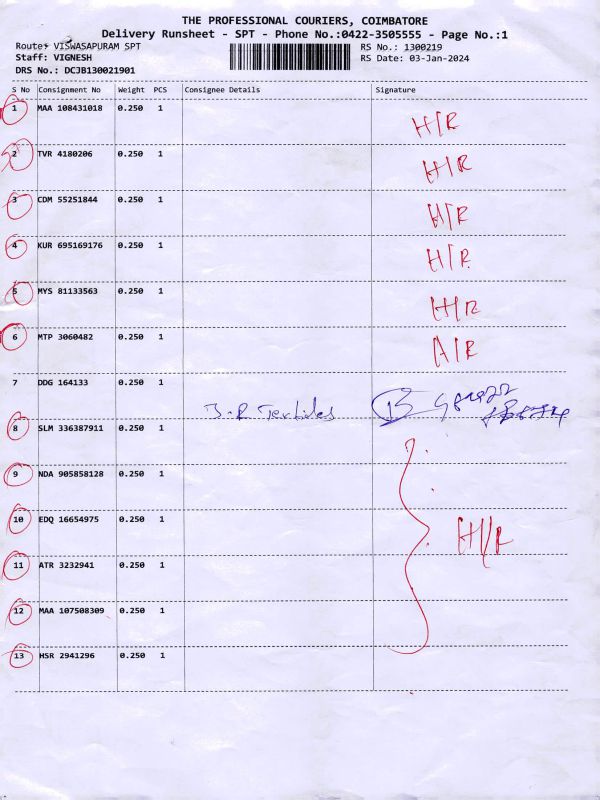 THE PROFESSIONAL COURIERS, COIMBATORE
Delivery Runsheet - SPT - Phone No.:0422-3505555 - Page No.:1
Route: VISWASAPURAM SPT RS No.: 1300219
Staff: VIGNESH RS Date: 03-Jan-2024
DRS No.: DCJB130021901
S No Consignment No Weight PCS Consignee Details Signature
1 MAA 108431018 0.250 1 H/R
2 TVR 4180206 0.250 1 H/R
3 CDM 55251844 0.250 1 H/R
4 KUR 695169176 0.250 1 H/R
5 MYS 81133563 0.250 1 H/R
6 MTP 3060482 0.250 1 A/R
7 DDG 164133 0.250 1
8 SLM 336387911 0.250 1
9 NDA 905858128 0.250 1
10 EDQ 16654975 0.250 1 H/R
11 ATR 3232941 0.250 1
12 MAA 107508309 0.250 1
13 HSR 2941296 0.250 1